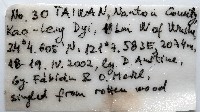 No. 30 TAIWAN, Nantou County
Kao-leng Dyi, 11 km W of Wushe
24°4.605'N, 121°7.583'E, 2044m,
18-19. IV. 2002, lg. D. Anstine,
Gy. Fábián & O. Merkl,
singled from rotten wood